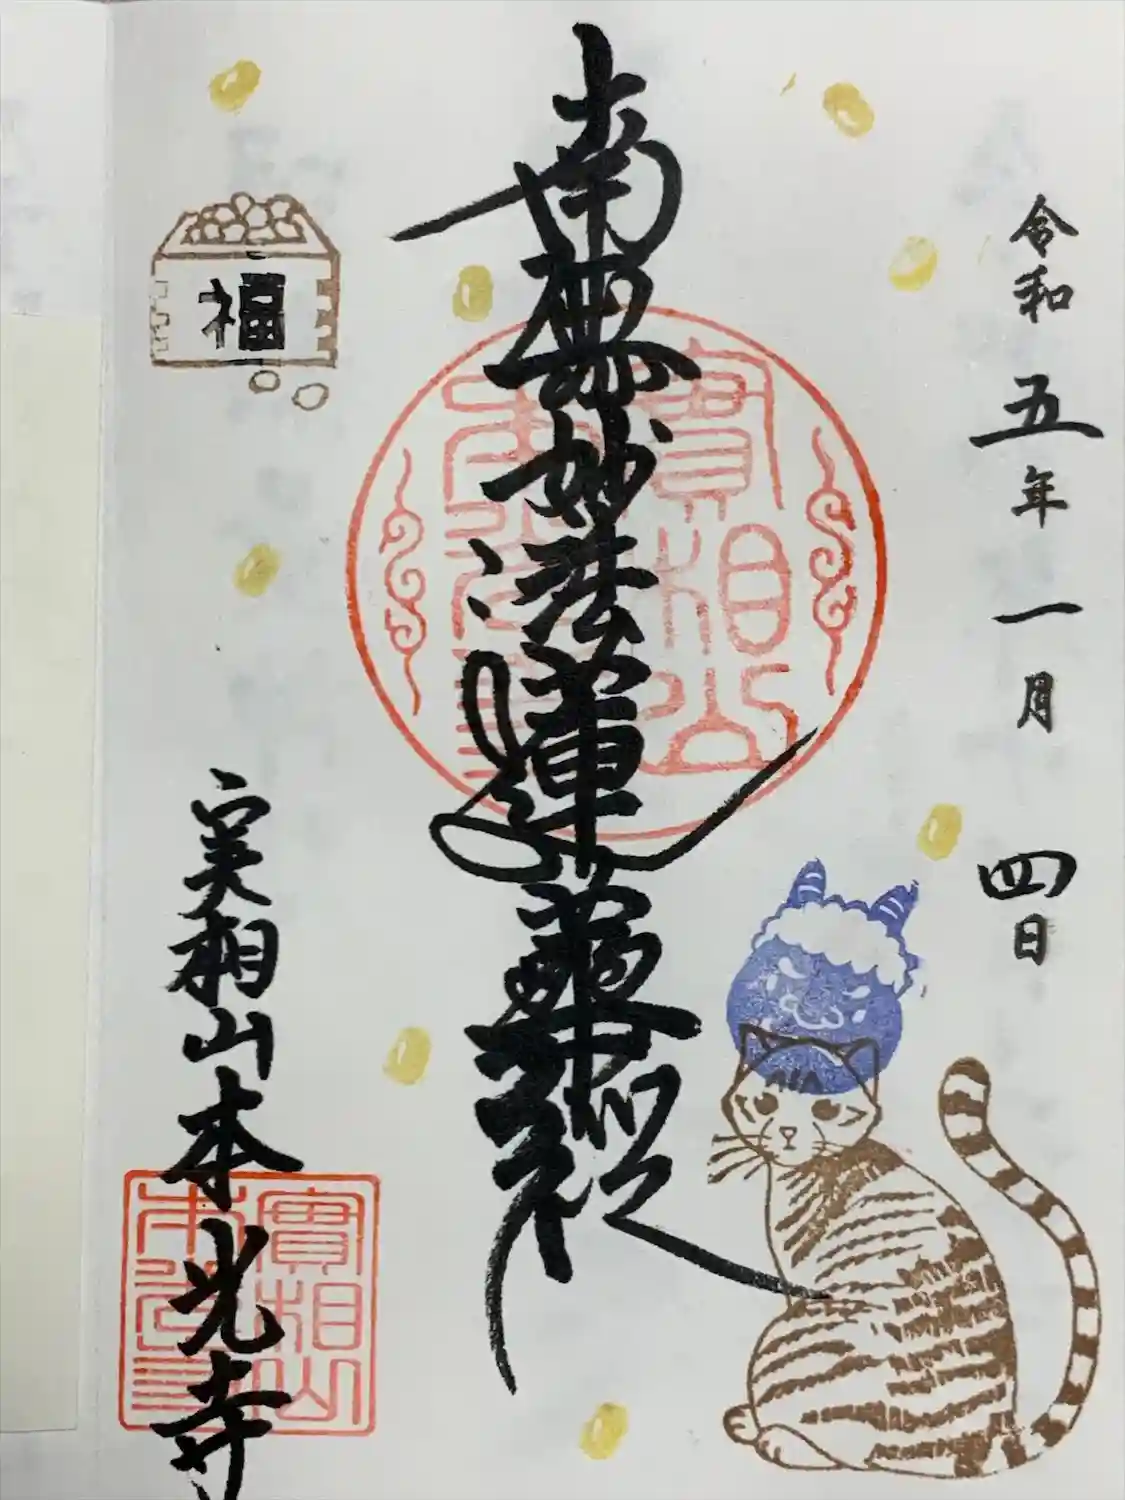 令和五年一月四日
南無妙法蓮華経
實相山
福
実相山本光寺
實相山
本光寺